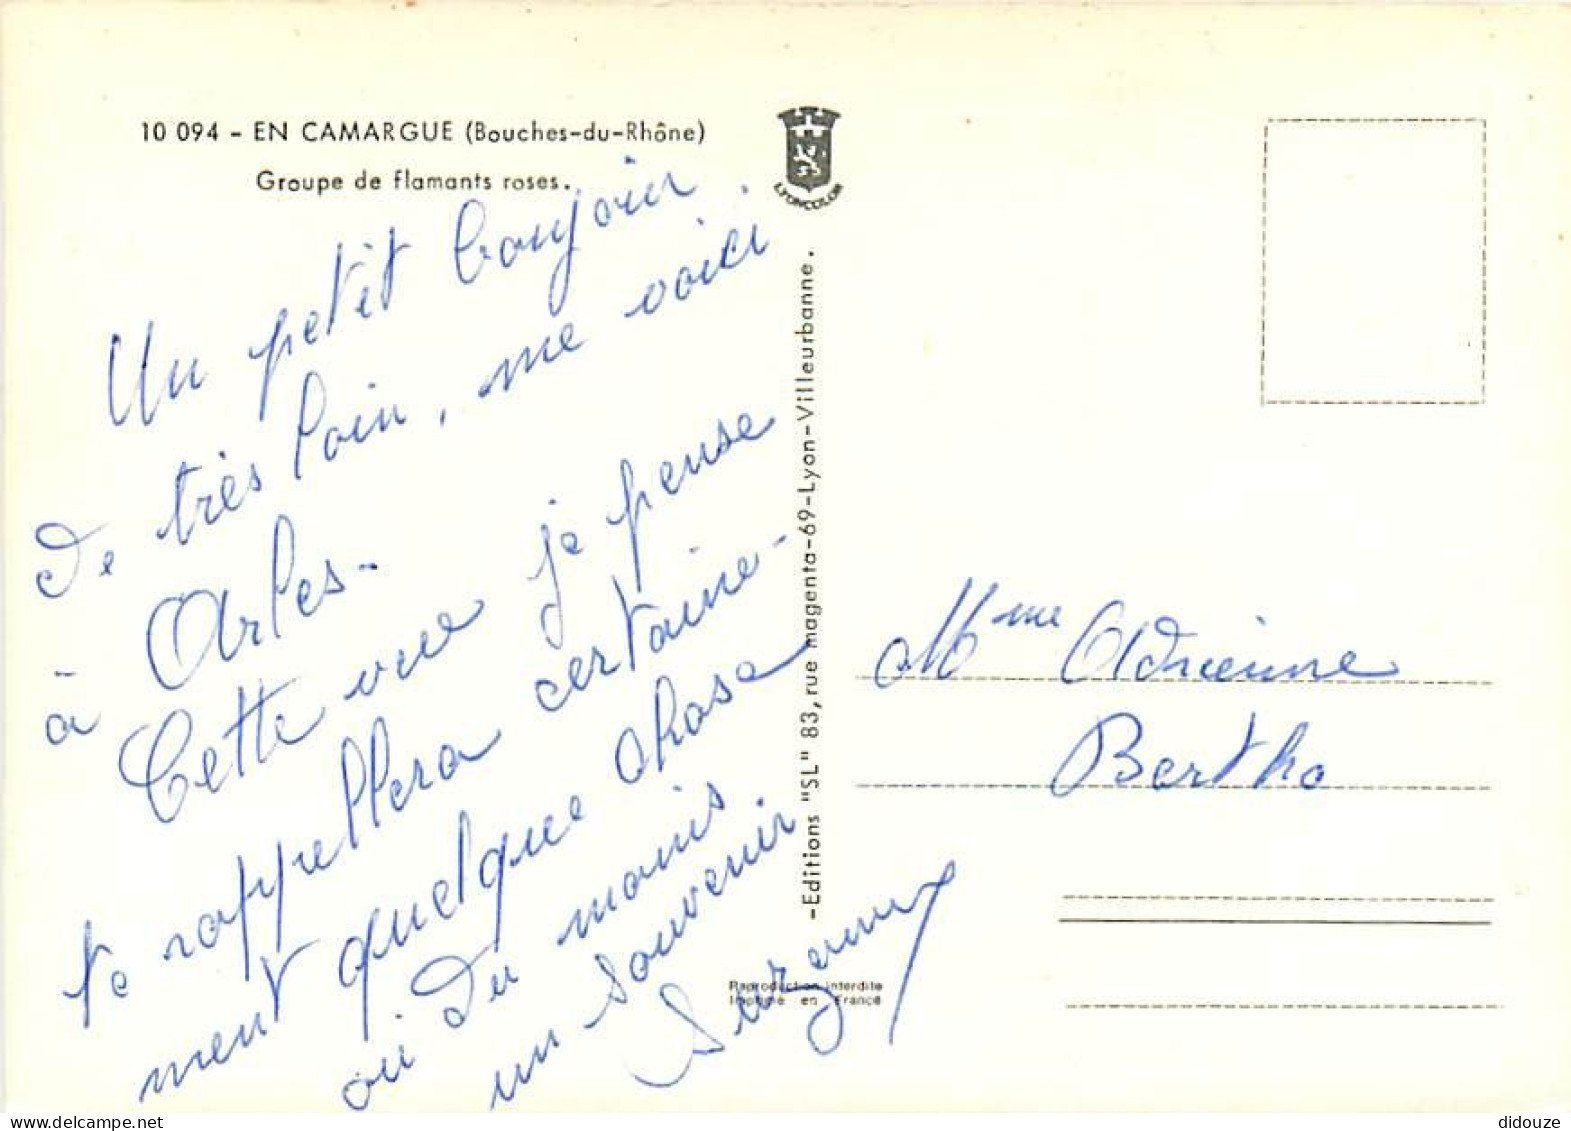 10 094 - EN CAMARGUE (Bouches-du-Rhône)
Groupe de flamants roses.
LYONCOLOR
Un petit bonjour
de très loin, me voici
à Arles -
Cette vue je pense
te rappellera certaine-
ment quelque chose
ou du moins
un souvenir
Suzanne
-Editions "SL" 83, rue magenta-69-Lyon-Villeurbanne.
Reproduction interdite
Imprimé en France
Mme Adrienne
Bertho
didouze